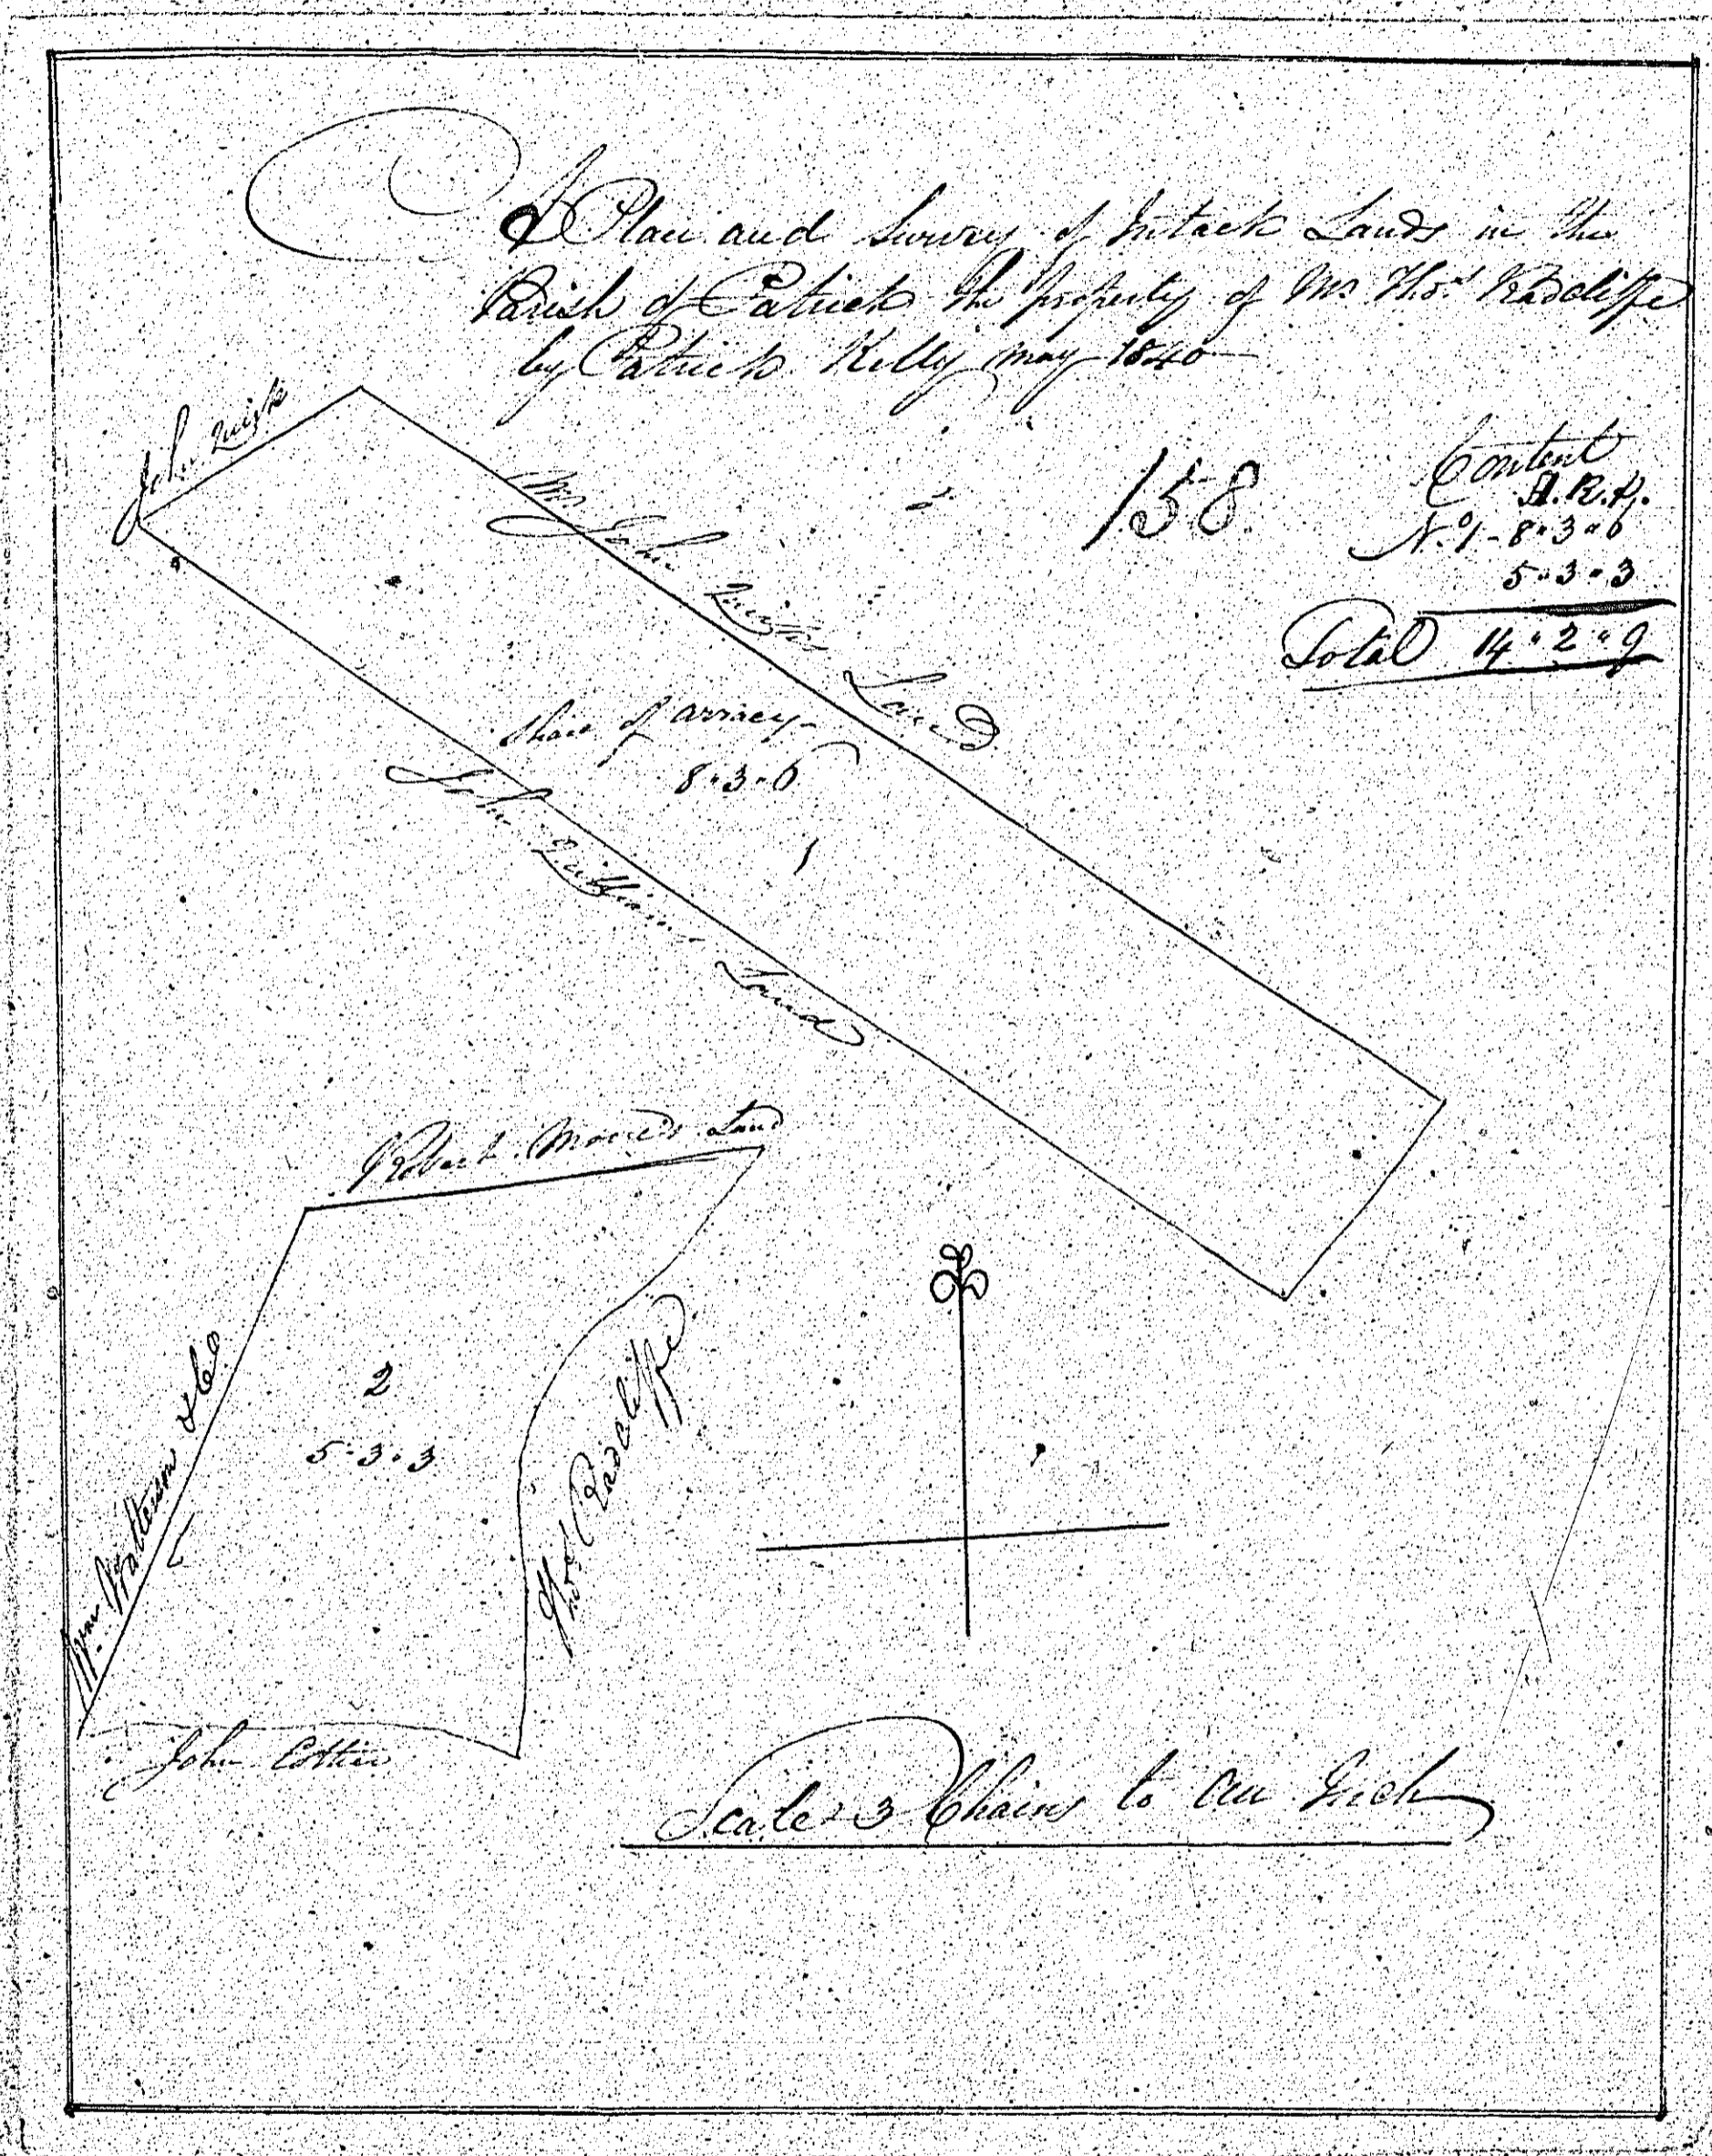 A Plan and Survey of Intack Lands in the
Parish of Patrick the property of Mr Thos. Radcliffe
by Patrick Kelly may 1840
John Quirk
158
Content
A. R. P.
No. 1 - 8 " 3 " 6
5 " 3 " 3
Total 14 " 2 " 9
Mr John Quirks Land
Share of
8 " 3 " 6
1
John Land
Robert Moore's Land
2
5 " 3 " 3
Wm. Watterson & Co
Thos. Radcliffe
John Cottier
Scale 3 Chains to an Inch